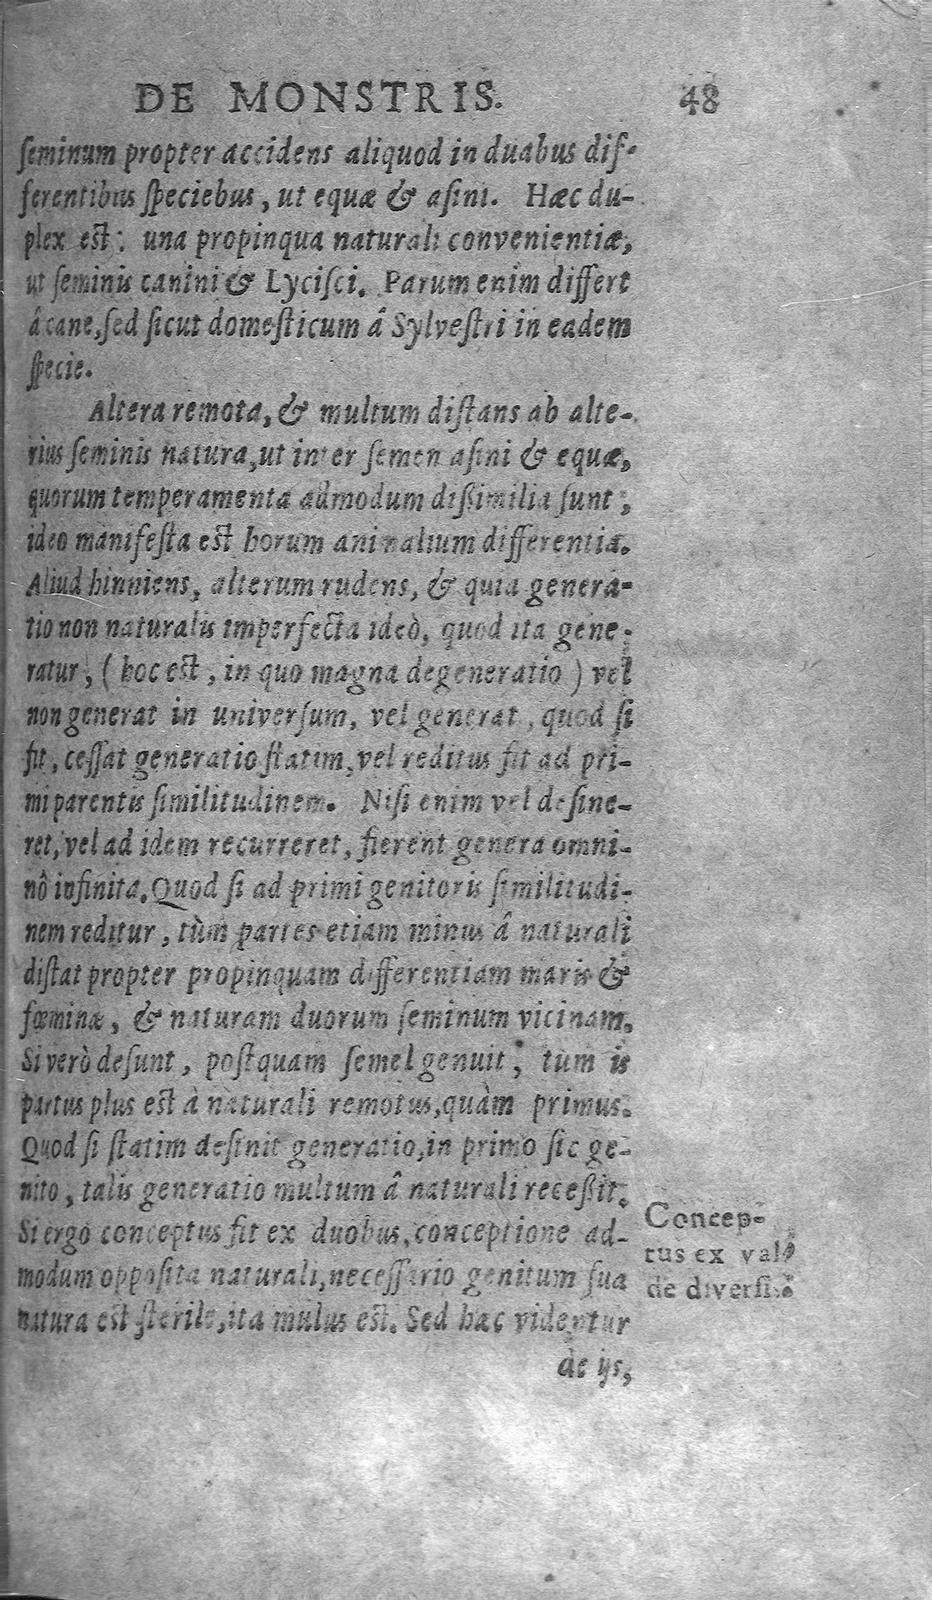 DE MONSTRIS. 48
ſeminum propter accidens aliquod in duabus diſ-
ferentibus ſpeciebus, ut equæ & aſini. Hæc du-
plex est: una propinqua naturali convenientiæ,
ut ſeminis canini & Lyciſci. Parum enim differt
â cane, ſed ſicut domeſticum â Sylveſtri in eadem
ſpecie.
Altera remota, & multum diſtans ab alte-
rius ſeminis natura, ut inter ſemen aſini & equæ,
quorum temperamenta admodum diſsimilia ſunt;
ideo manifeſta est horum animalium differentia.
Aliud hinniens, alterum rudens, & quia genera-
tio non naturalis imperfecta ideò, quod ita gene-
ratur, (hoc est, in quo magna degeneratio) vel
non generat in univerſum, vel generat, quod ſi
fit, ceſſat generatio ſtatim, vel reditus fit ad pri-
mi parentis ſimilitudinem. Niſi enim vel deſine-
ret, vel ad idem recurreret, fierent genera omni-
nô infinita. Quod ſi ad primi genitoris ſimilitudi-
nem reditur, tùm partes etiam minus â naturali
diſtat propter propinquam differentiam maris &
fœminæ, & naturam duorum ſeminum vicinam.
Si verò deſunt, poſtquam ſemel genuit, tum is
partus plus est à naturali remotus, quàm primus.
Quod ſi ſtatim deſinit generatio, in primo ſic ge-
nito, talis generatio multum â naturali receßit.
Si ergo conceptus fit ex duobus, conceptione ad-
modum oppoſita naturali, neceſſario genitum ſua
natura est ſterile, ita mulus est. Sed hac videntur
de ijs,
Concep-
tus ex val-
de diverſis.